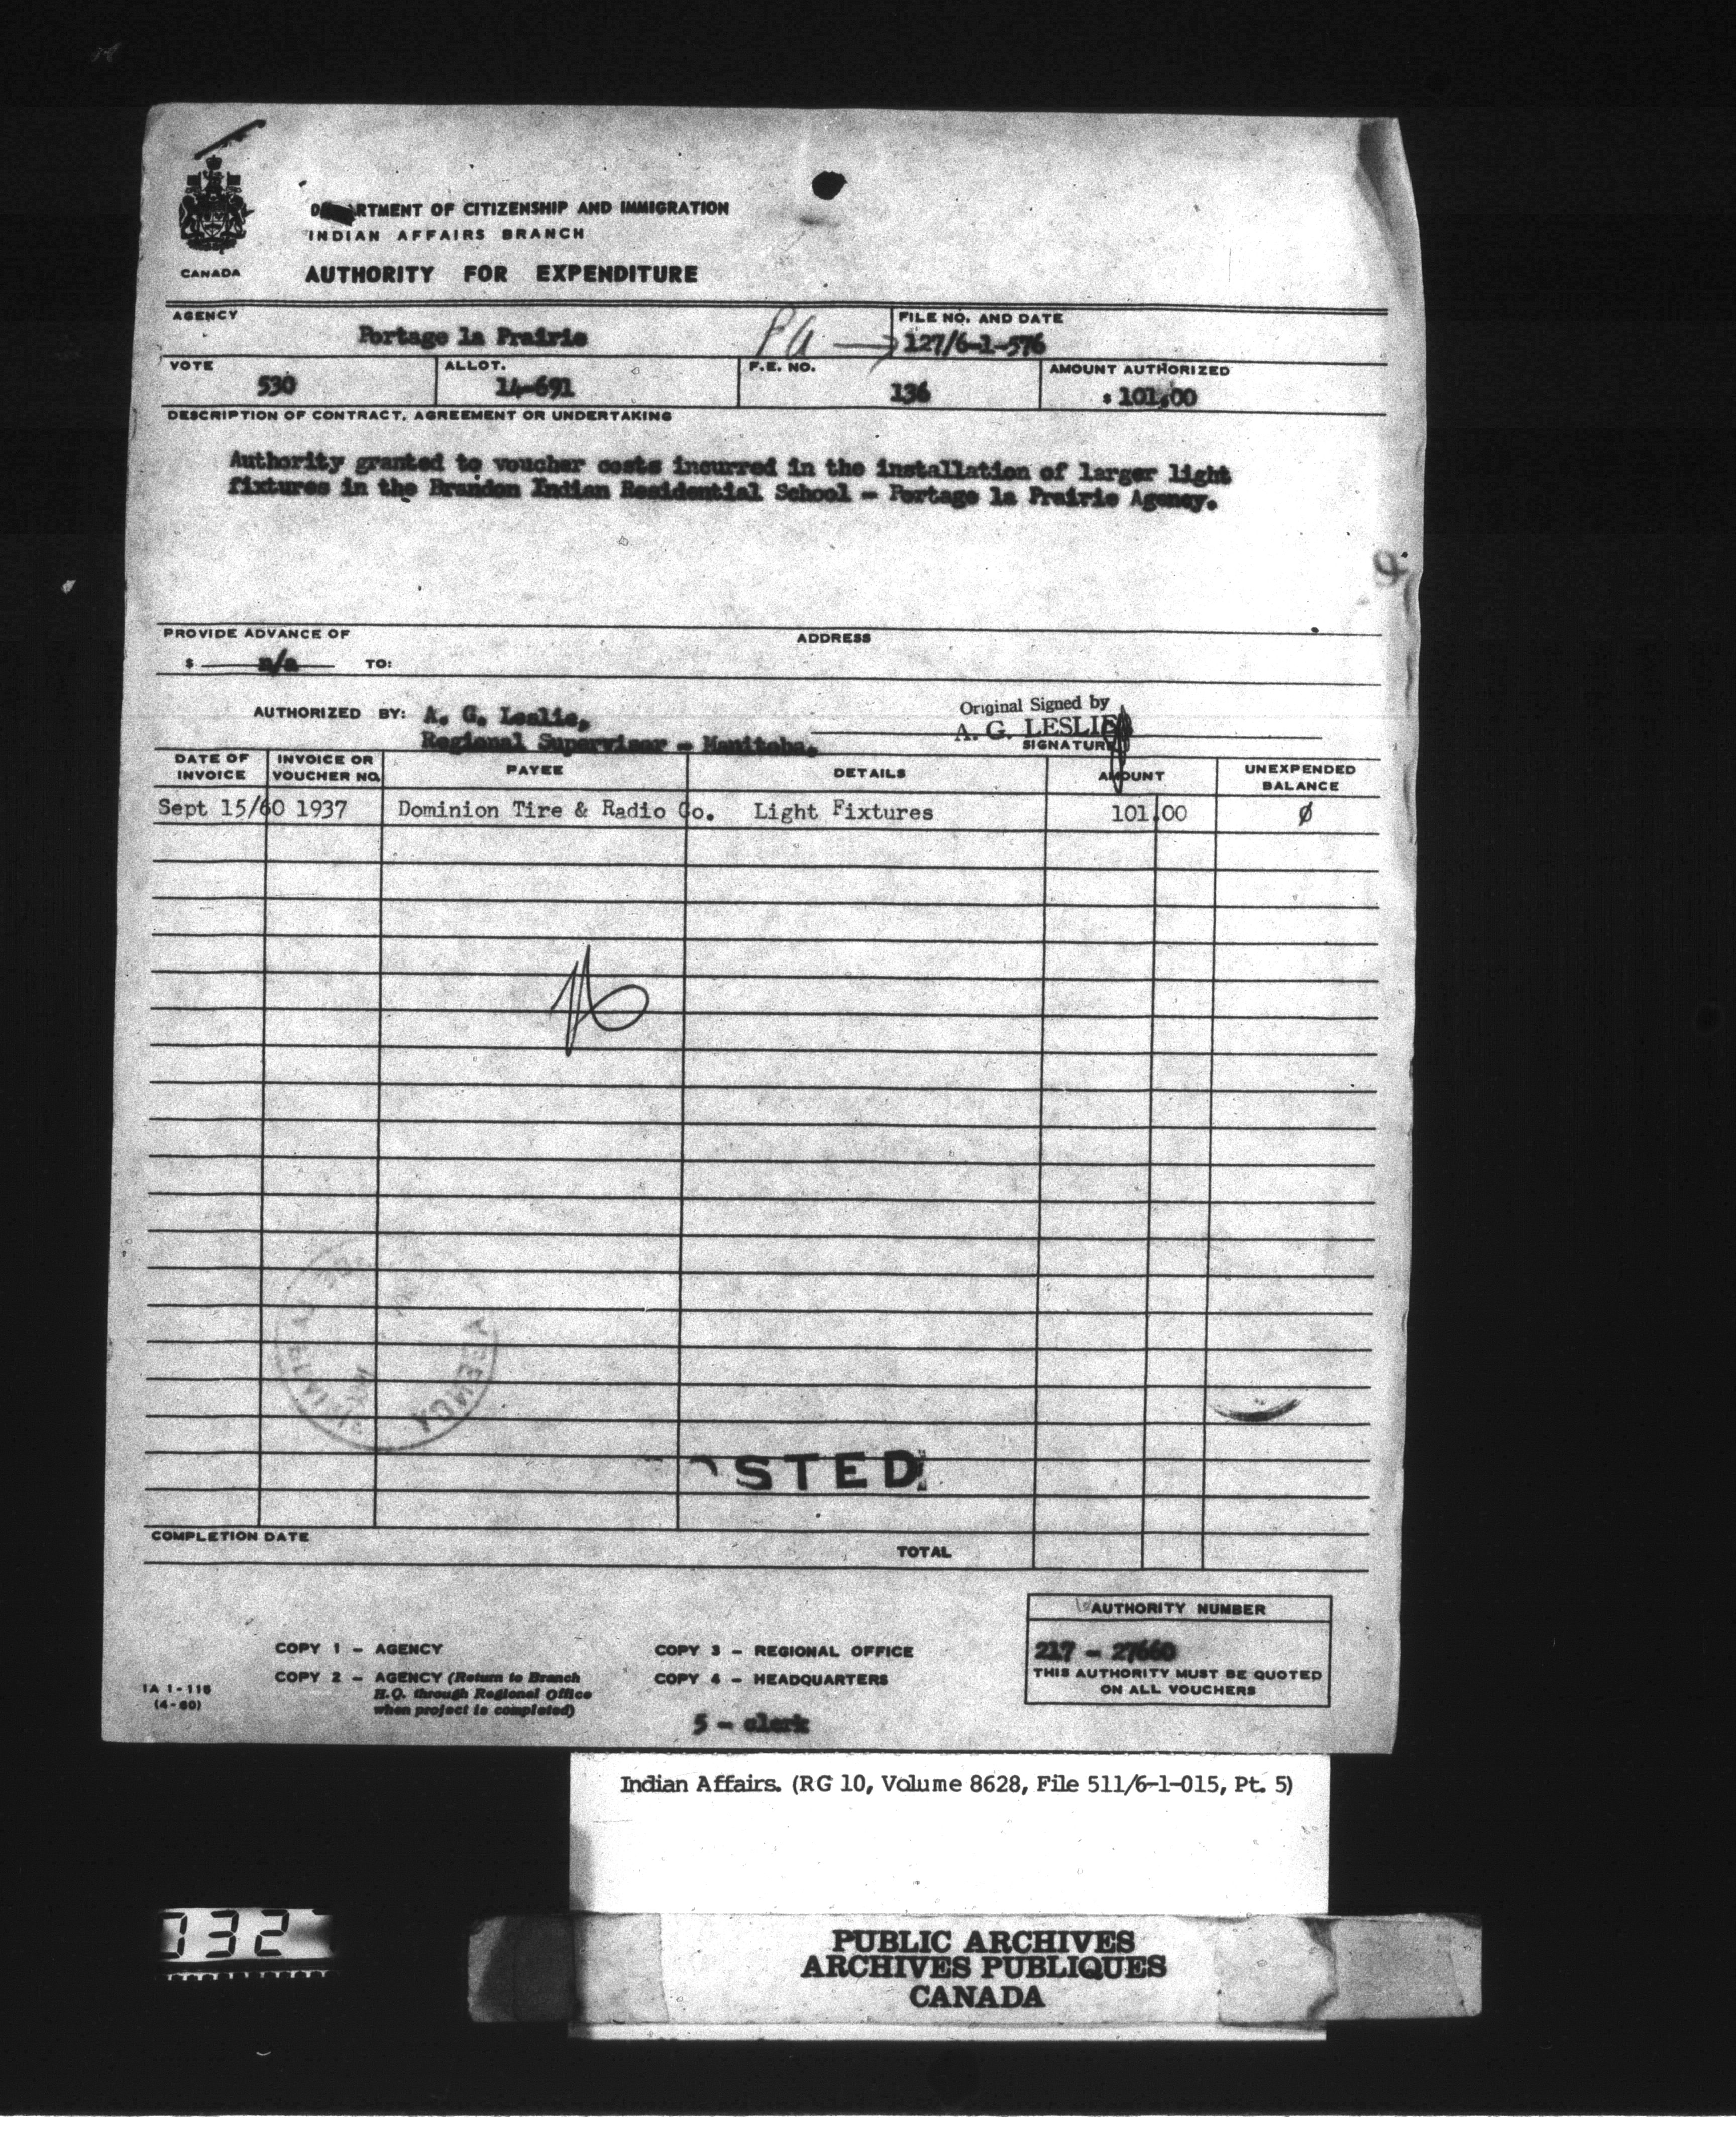 DEPARTMENT OF CITIZENSHIP AND IMMIGRATION
INDIAN AFFAIRS BRANCH
CANADA
AUTHORITY FOR EXPENDITURE
AGENCY
Portage la Prairie
PA
FILE NO. AND DATE
127/6-1-576
VOTE
530
ALLOT.
14-691
F.E. NO.
136
AMOUNT AUTHORIZED
$ 101.00
DESCRIPTION OF CONTRACT, AGREEMENT OR UNDERTAKING
Authority granted to voucher costs incurred in the installation of larger light
fixtures in the Brandon Indian Residential School - Portage la Prairie Agency.
PROVIDE ADVANCE OF
ADDRESS
$ n/a TO:
AUTHORIZED BY: A. G. Leslie,
Regional Supervisor - Manitoba.
Original Signed by
A. G. LESLIE
SIGNATURE
DATE OF INVOICE
INVOICE OR VOUCHER NO.
PAYEE
DETAILS
AMOUNT
UNEXPENDED BALANCE
Sept 15/60 1937 Dominion Tire & Radio Co. Light Fixtures 101.00 Ø
AGENCY
STED
COMPLETION DATE
TOTAL
AUTHORITY NUMBER
217 - 27660
THIS AUTHORITY MUST BE QUOTED
ON ALL VOUCHERS
COPY 1 - AGENCY
COPY 2 - AGENCY (Return to Branch
H.Q. through Regional Office
when project is completed)
COPY 3 - REGIONAL OFFICE
COPY 4 - HEADQUARTERS
5 - clerk
IA 1-116
(4-60)
Indian Affairs. (RG 10, Volume 8628, File 511/6-1-015, Pt. 5)
732
PUBLIC ARCHIVES
ARCHIVES PUBLIQUES
CANADA